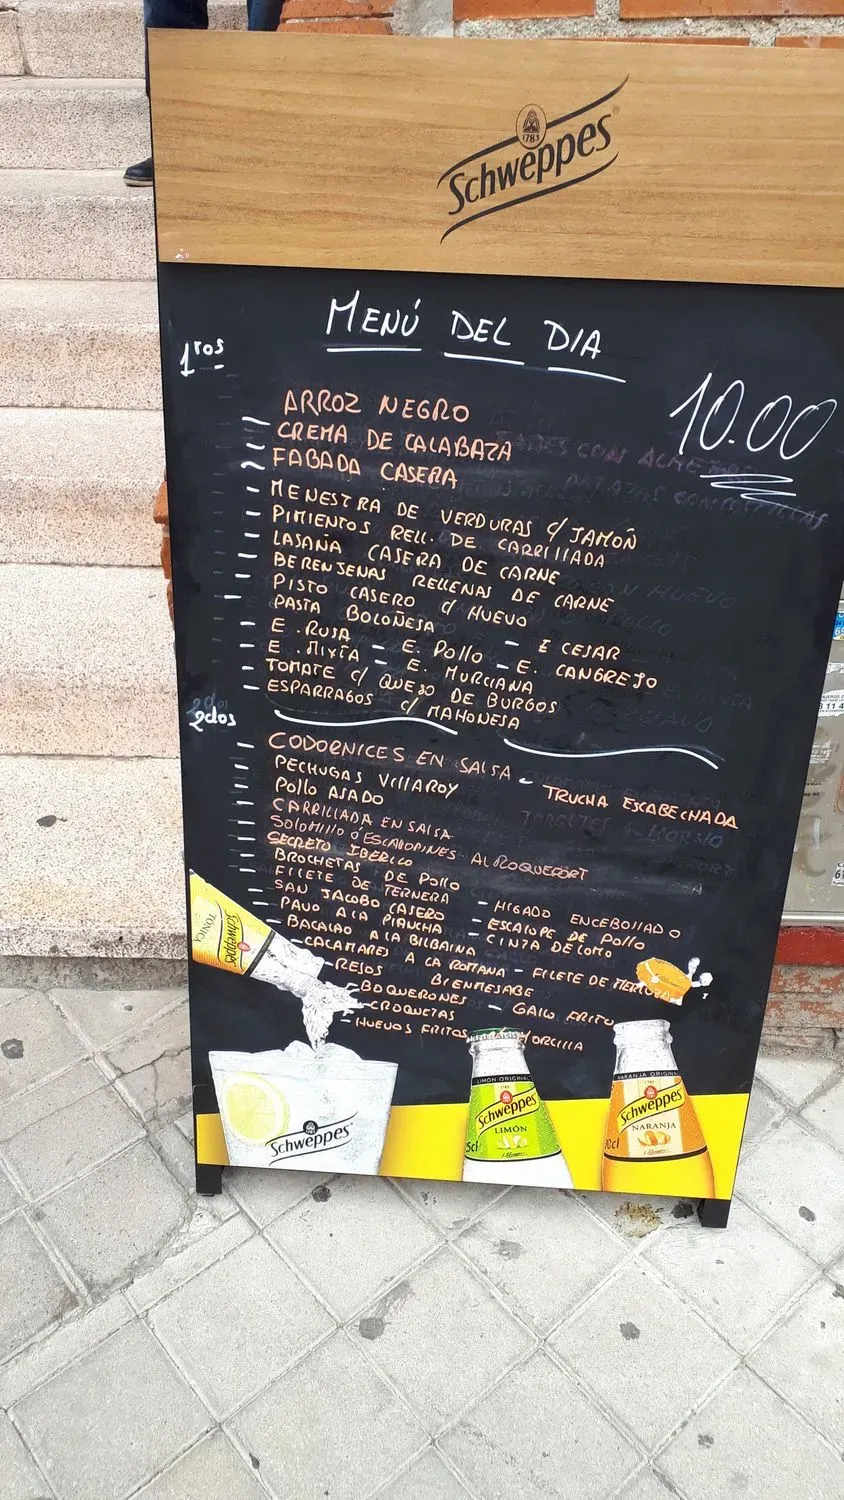 1783
Schweppes
MENÚ DEL DIA
1ros
10.00
ARROZ NEGRO
- CREMA DE CALABAZA
- FABADA CASERA
- MENESTRA DE VERDURAS C/ JAMÓN
- PIMIENTOS RELL. DE CARRILLADA
- LASAÑA CASERA DE CARNE
- BERENJENAS RELLENAS DE CARNE
- PISTO CASERO C/ HUEVO
- PASTA BOLOÑESA - E CESAR
- E. RUSA - E. POLLO - E. CANGREJO
- E. MIXTA - E. MURCIANA
- TOMATE C/ QUESO DE BURGOS
- ESPARRAGOS C/ MAHONESA
2dos
- CODORNICES EN SALSA - TRUCHA ESCABECHADA
- PECHUGAS VILLAROY
- POLLO ASADO
- CARRILLADA EN SALSA
- SOLOMILLO Ó ESCALOPINES AL ROQUEFORT
- SECRETO IBERICO
- BROCHETAS DE POLLO
- FILETE DE TERNERA - HIGADO ENCEBOLLADO
- SAN JACOBO CASERO - ESCALOPE DE POLLO
- PAVO A LA PLANCHA - CINTA DE LOMO
- BACALAO A LA BILBAINA
- CALAMARES A LA ROMANA - FILETE DE MERLUZA
- REJOS BIENMESABE
- BOQUERONES - GALLO FRITO
- CROQUETAS
- HUEVOS FRITOS MORCILLA
TONICA
Schweppes
Schweppes
LIMÓN ORIGINAL
1783
Schweppes
LIMÓN
NARANJA ORIGINAL
1783
Schweppes
NARANJA